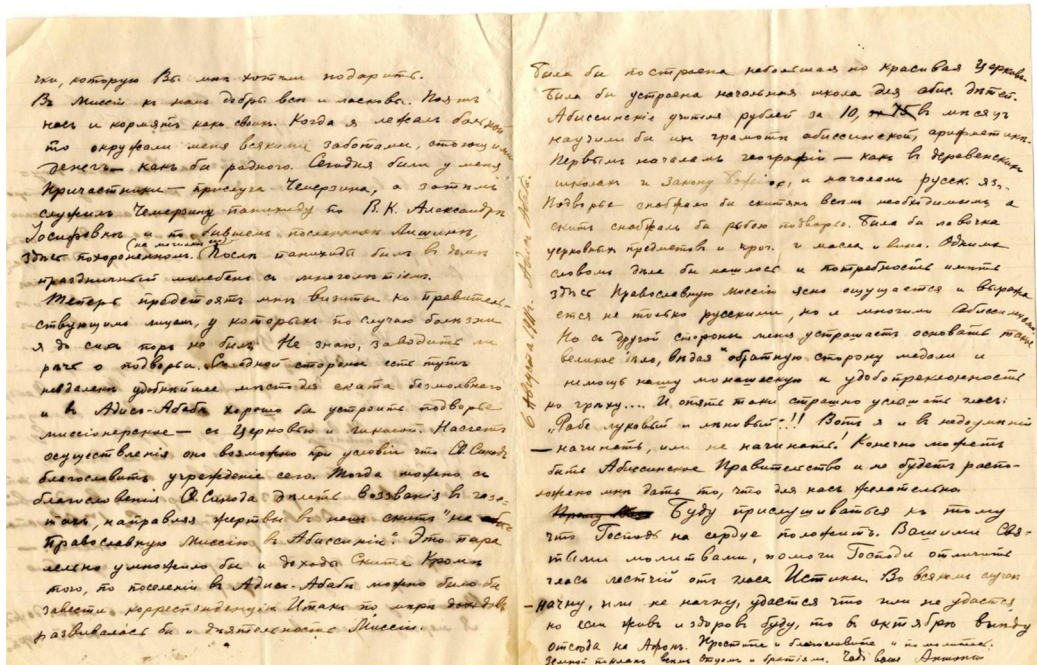 чки, которую Вы мнѣ хотѣли подарить.
Въ Миссіи къ намъ добры всѣ и ласковы. Поятъ
насъ и кормятъ какъ своихъ. Когда я лежалъ больной
то окружали меня всякими заботами, стоющими
денегъ — какъ бы родного. Сегодня были у меня
причастники — прислуга Чемерзина, а затѣмъ
служилъ Чемерзину панихиду по В.К. Александрѣ
Іосифовнѣ и по бывшемъ посланникѣ Лишинѣ,
здѣсь похороненномъ. (на могилѣ его) Послѣ панихиды былъ въ домѣ
праздничный молебенъ съ многолѣтіемъ.
Теперь предстоятъ мнѣ визиты ко правитель-
ствующимъ лицамъ, у которыхъ по случаю болѣзни
я до сихъ поръ не былъ. Не знаю, заводить ли
рѣчь о подворьи. Съ одной стороны есть тутъ
недалеко удобнѣйшее мѣсто для скита безмолвнаго
и въ Адисъ-Абабѣ хорошо бы устроить подворье
миссіонерское — съ Церковью и школой. Насчетъ
осуществленія оно возможно при условіи что Св. Синодъ
благословитъ учрежденіе сего. Тогда можно съ
благословенія Св. Синода дѣлать воззванія въ газе-
тахъ, направляя жертвы въ нашъ скитъ "на
православную Миссію въ Абиссиніи". Это пара
лельно умножило бы и доходы Скита. Кромѣ
того, по поселеніи въ Адисъ-Абабѣ можно было бы
завести корреспонденцію. Итакъ по мѣрѣ доходовъ
развивалась бы и дѣятельность Миссіи.
6 Августа 1911. Адисъ Абеба.
Была бы построена небольшая но красивая Церковь.
Была бы устроена начальная школа для абис. дѣтей.
Абиссинскіе учителя рублей за 10, 15 въ мѣсяцъ
научили бы ихъ грамотѣ абиссинской, арифметикѣ,
первымъ началамъ географіи — какъ въ деревенскихъ
школахъ и закону Божію, и началамъ русск. яз.
Подворье снабжало бы скитянъ всѣмъ необходимымъ а
скитъ снабжалъ бы рыбою подворье. Была бы лавочка
церковныхъ предметовъ и проч. и масла и вина. Однимъ
словомъ дѣла бы нашлось и потребность имѣть
здѣсь Православную Миссію ясно ощущается и выража
ется не только русскими, но и многими Абиссинцами
Но съ другой стороны меня устрашаетъ основать такое
великое дѣло, видя "обратную сторону медали и
немощь нашу монашескую и удобопреклонность
ко грѣху.... И опять таки страшно услышать гласъ:
„Рабе лукавый и лѣнивый"!! Вотъ я и въ недоумѣніи
— начинать, или не начинать! Конечно можетъ
быть Абиссинское Правительство и не будетъ распо-
ложено мнѣ дать то, что для насъ желательно.
Буду прислушиваться къ тому
что Господь на сердце положитъ. Вашими Свя-
тыми молитвами, помоги Господи отличить
гласъ лестчій отъ гласа Истины. Во всякомъ случаѣ
— начну, или не начну, удастся что или не удастся,
но если живъ и здоровъ буду, то въ октябрѣ выѣду
отсюда на Аѳонъ. Простите и благословите и помолитесь.
Земной поклонъ всѣмъ отцамъ и братіямъ. Чадо ваше Антоній